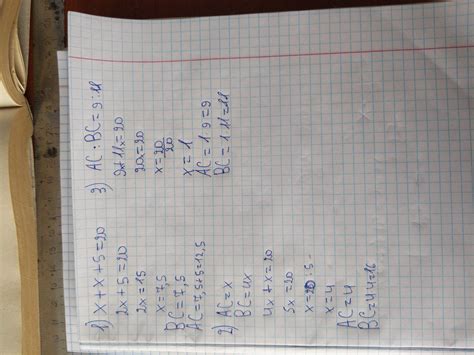 1) x + x + 5 = 20
2x + 5 = 20
2x = 15
x = 7,5
BC = 7,5
AC = 7,5 + 5 = 12,5
2) AC = x
BC = 4x
4x + x = 20
5x = 20
x = 20 : 5
x = 4
AC = 4
BC = 4 · 4 = 16
3) AC : BC = 9 : 11
9x + 11x = 20
20x = 20
x = 20/20
x = 1
AC = 1 · 9 = 9
BC = 1 · 11 = 11